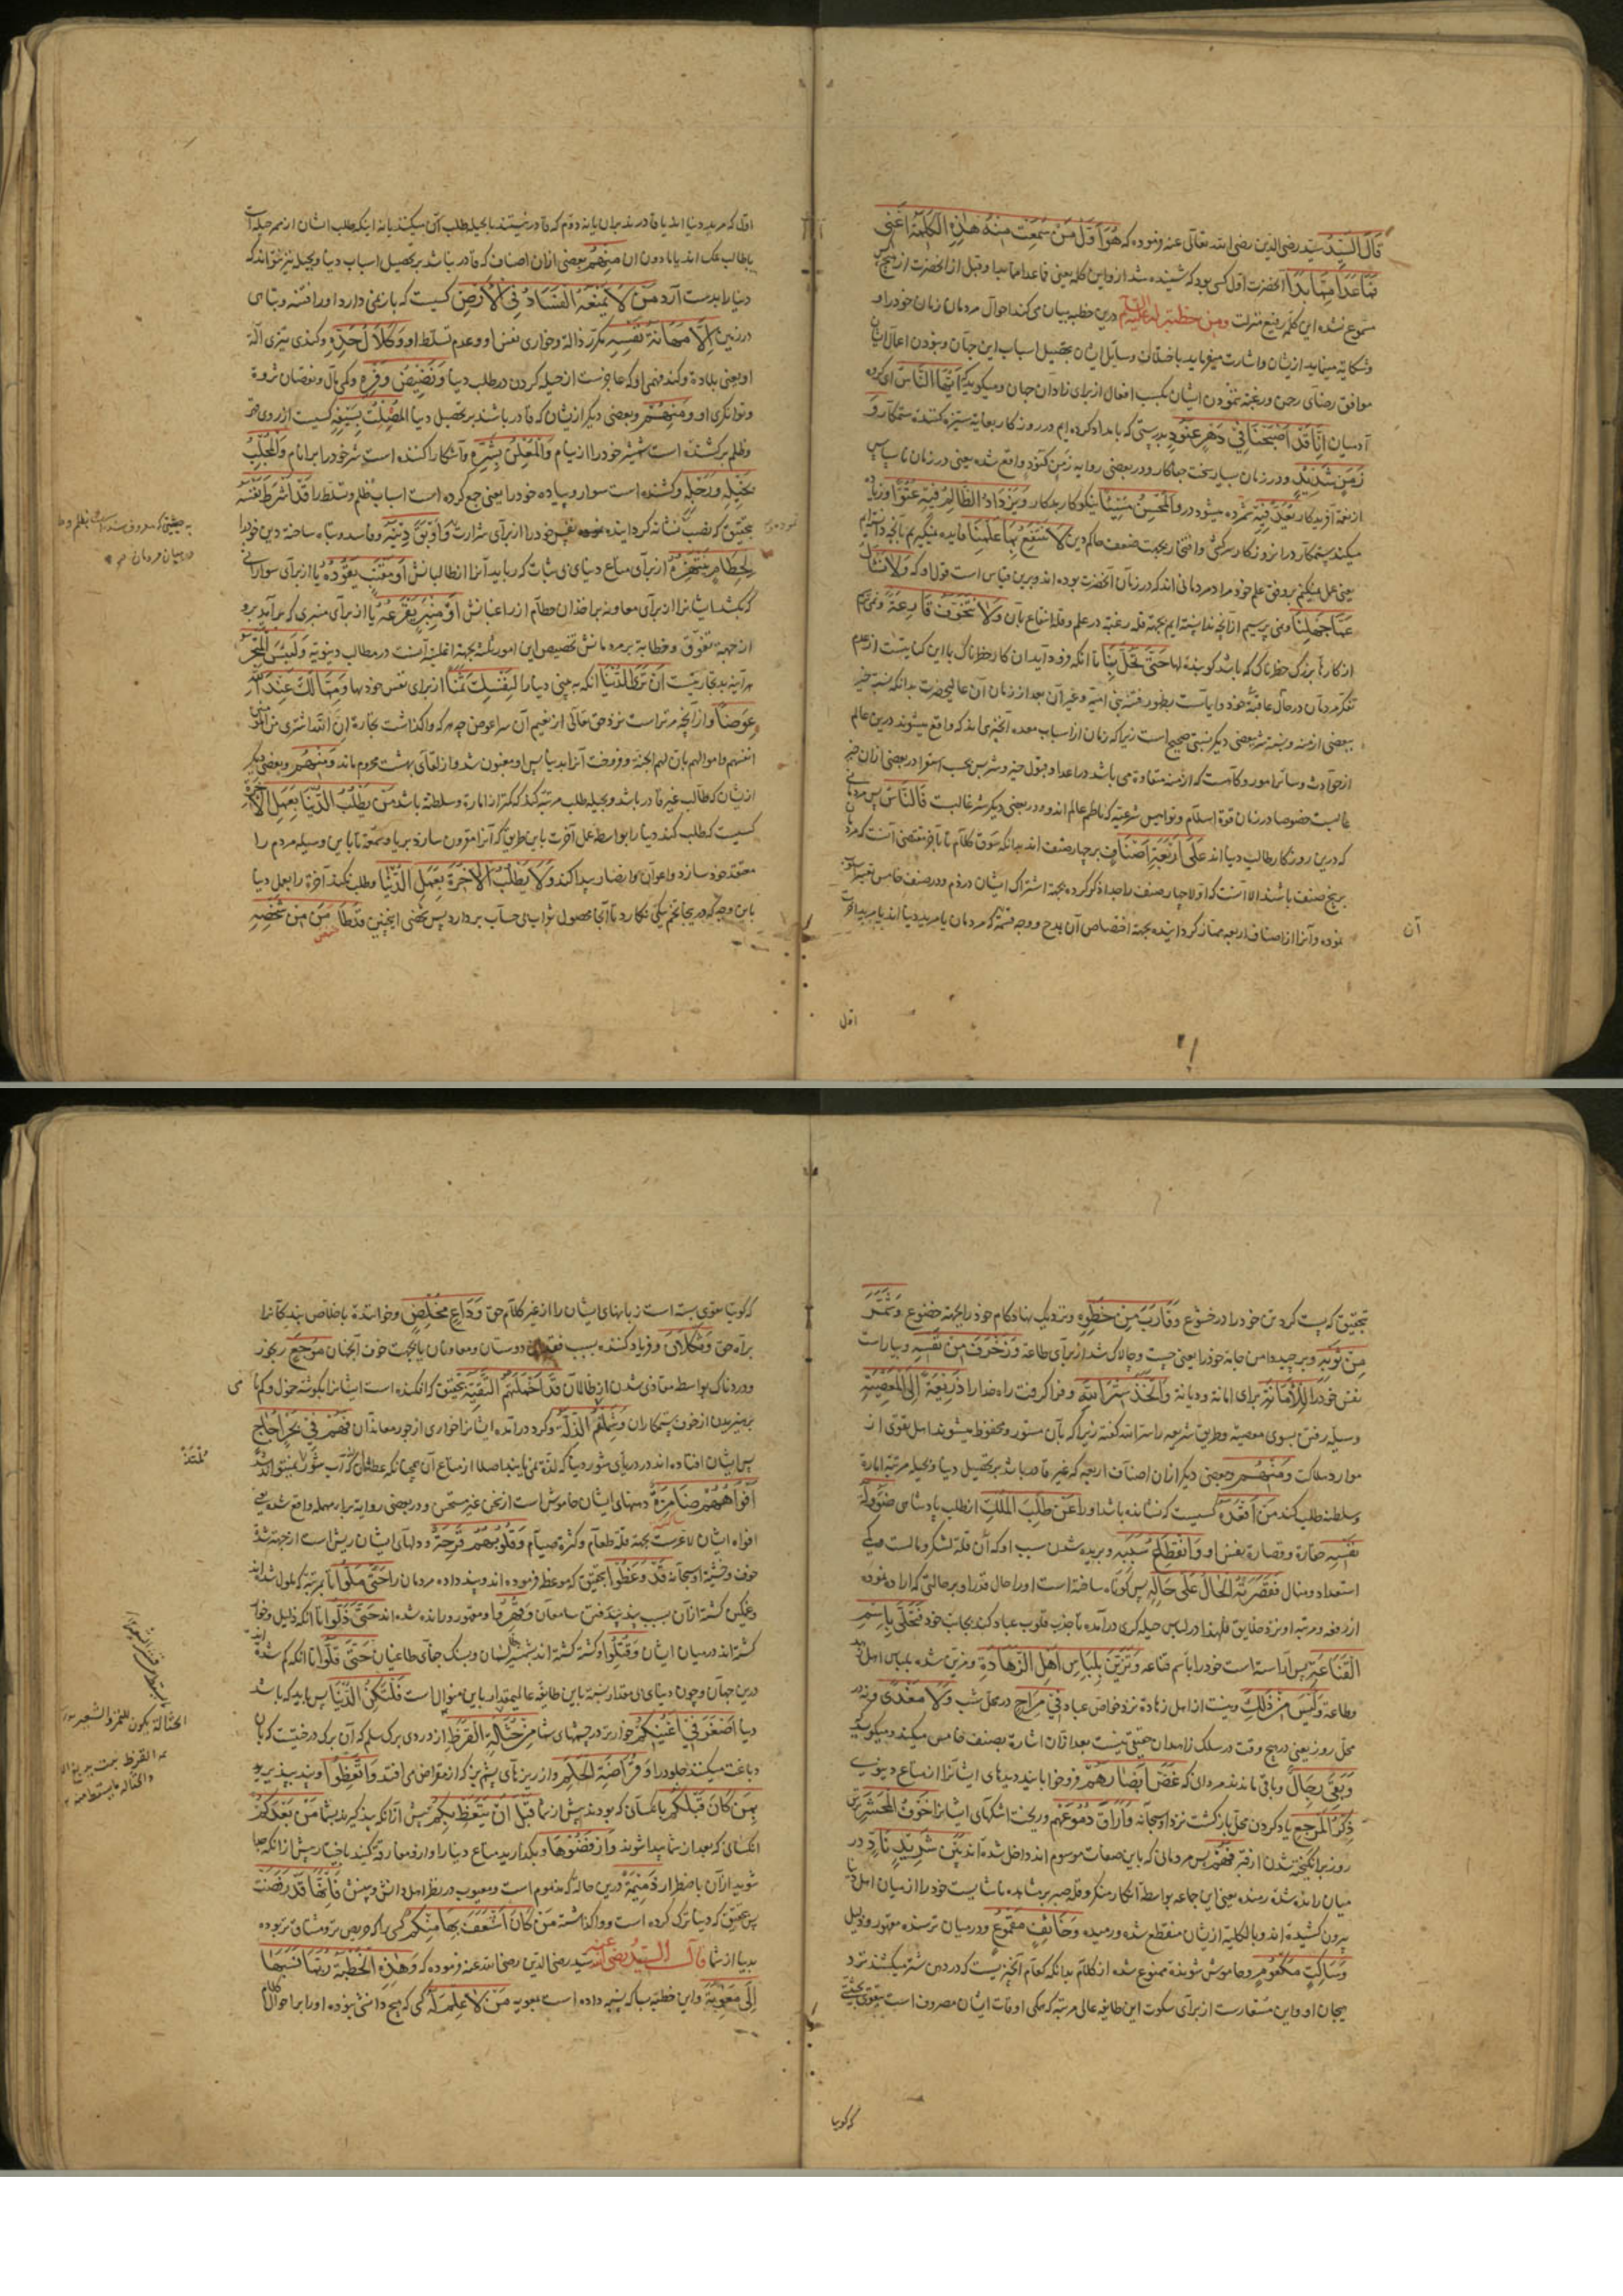 قَالَ السَّيِّدُ سید رضی الدین رضی الله تعالی عنه فرموده که هُوَ اَوَّلُ مَنْ سُمِعَتْ مِنْهُ هٰذِهِ الْكَلِمَةُ اَعْنِی
مَا عَدَا مِمَّا بَدَا آنحضرت اول کسی بود که شنیده شد ازو این کلمه یعنی فما عدا مما بدا و قبل از آنحضرت از هیچکس
مسموع نشده این کلمه رفیع منزلت ومن خطبة له علیه السلم درین خطبه بیان می کند احوال مردمان زمان خود را و
شکایة مینماید ازیشان و اشارت میفرماید باختلاف وسایل ایشان بتحصیل اسباب این جهان و نبودن اعمال ایشان
موافق رضای رحمن و رغبة نمودن ایشان بکسب افعال از برای زاد آن جهان و میکوید که اَیُّهَا النَّاسُ ای کروه
آدمیان اِنَّا قَدْ اَصْبَحْنَا فِی دَهْرٍ عَنُودٍ بدرستی که بامداد کرده ایم در روزکار بغایة ستیزه کننده ستمکار وَ
زَمَنٍ شَدِیدٍ و در زمان بسیار سخت جفاکار و در بعضی روایة زمن کنود واقع شده یعنی در زمان ناسپاس
از نعمة آفریدکار یُعَدُّ فِیهِ شمرده میشود درو الْمُحْسِنُ مُسِیئًا نیکوکار بدکار وَ یَزْدَادُ الظَّالِمُ فِیهِ عُتُوًّا و زیاده
میکند ستمکار در آن روزکار سرکشی و افتخار بجهت ضعف حاکم دین لَا نَنْتَفِعُ بِمَا عَلِمْنَا فایده نمیکیریم بآنچه دانسته ایم
یعنی عمل نمیکنیم بر وفق علم خود مراد مردمانی اند که در زمان آنحضرت بوده اند و برین قیاس است قول او که وَلَا نَسْأَلُ
عَمَّا جَهِلْنَا و نمی پرسیم از آنچه ندانسته ایم بجهة قلة رغبة در علم و قلة انتفاع بآن وَلَا نَتَخَوَّفُ قَارِعَةً و نمی ترسیم
از کارهای بزرک خطرناک که باشد کوبنده دلها حَتّٰی تَحُلَّ بِنَا تا آنکه فرود آید آن کار خطرناک بما این کنایتست از عدم
تفکر مردمان در حال عاقبة خود
بعضی ازمنه و بنسبة شر ببعضی دیکر نسبتی صحیح است زیرا که زمان از اسباب معده آنچیزی اند که واقع میشوند درین عالم
غالبست خصوصا در زمان قوة اسلام و نوامیس شرعیه که ناظم عالم اند و در بعضی دیکر شر غالبست فَالنَّاسُ پس مردمانی
که درین روزکار طالب دنیا اند عَلٰی اَرْبَعَةِ اَصْنَافٍ بر چهار صنف اند
بر پنج صنف باشند الا آنست که اولا چهار صنف را جدا ذکر کرده بجهة اشتراک ایشان در ذم و در صنف خامس تغییر اسلوب
نموده و آنرا از اصناف اربعه ممتاز کردانیده بجهة اختصاص آن بمدح و وجه قسمة که مردمان یا مرید دنیا اند یا مرید آخرت
آن
اول
اول که مرید دنیا اند یا قادرند بران یا نه دوم که قادر نیستند یا بحیله طلب آن میکنند یا نه
یا طالب ملک اند یا مادون آن مِنْهُمْ بعضی ازان اصناف که قادر نباشد بر تحصیل اسباب دنیا و بحیله نیز نتواند که
دنیا را بدست آرد مَنْ لَا یَمْنَعُهُ الْفَسَادَ فِی الْاَرْضِ کسیست که باز نمی دارد او را از فتنه و تباهی
در زمین اِلَّا مَهَانَةُ نَفْسِهِ مکر رذالة و خواری نفس او و عدم تسلط او وَكَلَالُ حَدِّهِ و کندی تیزی آلة
او یعنی بلادة و کند فهمی او که عاجزست از حیله کردن در طلب دنیا وَنَضِیضُ وَفْرِهِ و کمی مال و نقصان ثروة
و توانکری او وَمِنْهُمْ و بعضی دیکر ازیشان که قادر باشند بر تحصیل دنیا الْمُصْلِتُ بِسَیْفِهِ کسیست از روی قهر
و ظلم برکشنده است شمشیر خود را از نیام وَالْمُعْلِنُ بِشَرِّهِ و آشکارا کننده است شر خود را بر انام وَالْمُجْلِبُ
بِخَیْلِهِ وَرَجْلِهِ و کشنده است سوار و پیاده خود را یعنی جمع کرده است اسباب ظلم و تسلط را قَدْ اَشْرَطَ نَفْسَهُ
بتحقیق که نصب و نشانه کردانیده نفس خود را از برای شرارت وَ اَوْبَقَ دِینَهُ و فاسد و تباه ساخته دین خود را
لِحُطَامٍ یَنْتَهِزُهُ از برای متاع دنیای بی ثبات که رباید آنرا از طالبانش اَوْ مِقْنَبٍ یَقُودُهُ یا از برای سوارانی
که بکشد ایشانرا از برای معاونة بر اخذ آن حطام از راغبانش اَوْ مِنْبَرٍ یَفْرَعُهُ یا از برای منبری که برآید برو
از جهة تفوق و خطابة بر مردمانش تخصیص این امور ثلثة بجهة اغلبیة آنست در مطالب دنیویه وَلَبِئْسَ الْمَتْجَرُ
هر آینه بد تجارتیست اَنْ تَرَی الدُّنْیَا آنکه به بینی دنیا را لِنَفْسِكَ ثَمَنًا از برای نفس خود بها وَمِمَّا لَكَ عِنْدَ اللّٰهِ
عِوَضًا و از آنچه مر تراست نزد حق تعالی از نعیم آن سرا عوض چه هر که واکذاشت تجارة ان الله اشتری من المؤمنین
انفسهم و اموالهم بان لهم الجنة و فروخت آنرا بدنیا پس او مغبون شد و از لقای بهشت محروم ماند وَمِنْهُمْ و بعضی دیکر
ازیشان که طالب غیر قادر باشد و بحیله طلب مرتبه کند که کمتر از امارة و سلطنة باشد مَنْ یَطْلُبُ الدُّنْیَا بِعَمَلِ الْاٰخِرَةِ
کسیست که طلب کند دنیا را بواسطه عمل آخرت باین طریق که آنرا مقرون سازد بریا و سمعة تا باین وسیله مردم را
معتقد خود سازد و اعوان و انصار پیدا کند وَلَا یَطْلُبُ الْاٰخِرَةَ بِعَمَلِ الدُّنْیَا و طلب نکند آخرة را بعمل دنیا
باین وجه که درینجا تخم نیکی نکارد تا آنجا محصول ثواب بی حساب بردارد پس شخصی اینچنین قَدْ طَاْمَنَ مِنْ شَخْصِهِ
بتحقیق که پست کرد تن خود را در خشوع وَقَارَبَ مِنْ خَطْوِهِ و نزدیک نهاد کام خود را بجهة خضوع وَشَمَّرَ
مِنْ ثَوْبِهِ و برچید دامن جامه خود را یعنی چست و چالاک شد از برای طاعة وَزَخْرَفَ مِنْ نَفْسِهِ و بیاراست
نفس خود را لِلْاَمَانَةِ برای امانة و دیانة وَاتَّخَذَ سِتْرَ اللّٰهِ و فراکرفت راه خدا را ذَرِیعَةً اِلَی الْمَعْصِیَةِ
وسیله رفتن بسوی معصیة و طریق شریعه را ستر الله کفته زیرا که بآن مستور و محفوظ میشوند اهل تقوی از
موارد هلاکت وَمِنْهُمْ و بعضی دیکر ازان اصناف اربعه که غیر قادر باشد بر تحصیل دنیا و بحیله مرتبه امارة
و سلطنة طلب کند مَنْ اَقْعَدَهُ کسیست که نشانده باشد او را عَنْ طَلَبِ الْمُلْكِ از طلب پادشاهی ضُؤُولَةُ
نَفْسِهِ حقارة و قصارة نفس او وَانْقِطَاعُ سَبَبِهِ و بریده شدن سبب او که آن قلة لشکر و مالست و بی
استعداد و منال فَقَصَرَتْهُ الْحَالُ عَلٰی حَالِهِ پس کوتاه ساخته است او را حال قدر او بر حالتی که اراده نموده
از رفعة و مرتبه او نزد خلایق فلهذا در لباس حیله کری درآمده تا جذب قلوب عباد کند بجانب خود فَتَحَلّٰی بِاسْمِ
الْقَنَاعَةِ پس آراسته است خود را باسم قناعة وَتَزَیَّنَ بِلِبَاسِ اَهْلِ الزَّهَادَةِ و مزین شده بلباس اهل زهد
و طاعة وَلَیْسَ مِنْ ذٰلِكَ و نیست از اهل زهادة نزد خواص عباد فِی مَرَاحٍ در محل شب وَلَا مَغْدًی و نه در
محل روز یعنی در هیچ وقت در سلک زاهدان حقیقی نیست بعد ازان اشارة بصنف خامس میکند و میکوید
وَبَقِیَ رِجَالٌ و باقی ماندند مردمان که غَضَّ اَبْصَارَهُمْ فرو خوابانید دیدهای ایشانرا از متاع دنیوی
ذِكْرُ الْمَرْجِعِ یاد کردن محل بازکشت نزد او سبحانه وَاَرَاقَ دُمُوعَهُمْ و ریخت اشکهای ایشانرا خَوْفُ الْمَحْشَرِ ترس
روز برانکیخته شدن از قبر فَهُمْ پس مردمانی که باین صفات موسوم اند داخل شده اند بَیْنَ شَرِیدٍ نَادٍّ در
میان رانده شده رمنده یعنی این جماعه بواسطة انکار منکر و قلة صبر بر مشاهده ناشایست خود را از میان اهل دنیا
بیرون کشیده اند و بالکلیه ازیشان منقطع شده و رمیده وَخَائِفٍ مَقْمُوعٍ و در میان ترسنده مقهور و ذلیل
وَسَاكِتٍ مَكْعُومٍ و خاموش شونده ممنوع شده از کلام بدانکه کعام آنچیزیست که در دهن شتر میکشند نزد
هیجان او و این مستعارست از برای سکوت این طایفه عالی مرتبه که همکی اوقات ایشان مصروف است بتقوی بحیثیتی
که کویا
که کویا تقوی بسته است زبانهای ایشان را از غیر کلام حق وَدَاعٍ مُخْلِصٍ و خوانندة باخلاص بندکانرا
براه حق وَثَكْلَانَ و فریاد کننده بسبب فقدان دوستان و معاونان یا بجهت خوف آنجهان مُوجَعٍ رنجور
و دردناک بواسطه متاذی شدن از ظالمان قَدْ اَخْمَلَتْهُمُ التَّقِیَّةُ بتحقیق که افکنده است ایشانرا بکوشه خمول و کم نامی
پرهیزیدن از خوف ستمکاران وَشَمِلَتْهُمُ الذِّلَّةُ و کرد درآمده ایشانرا خواری از جور معاندان فَهُمْ فِی بَحْرٍ اُجَاجٍ
پس ایشان افتاده اند در دریای شور دنیا که لذة نمی یابند اصلا از متاع آن همچنانکه عطشان از آب شور
اَفْوَاهُهُمْ ضَامِزَةٌ دهنهای ایشان خاموش است از سخن غیر مستحسن و در بعضی روایة براء مهمله واقع شده یعنی
افواه ایشان لاغرست بجهة قلة طعام و کثرة صیام وَقُلُوبُهُمْ قَرِحَةٌ و دلهای ایشان ریش است از جهة شدة
خوف و خشیة او سبحانه قَدْ وَعَظُوا بتحقیق که موعظه فرموده اند و پند داده مردمان را حَتّٰی مَلُّوا تا بمرتبة که ملول شده اند
و غمکین کشته ازان بسبب پند نپذیرفتن سامعان وَقُهِرُوا و مقهور و رانده شده اند حَتّٰی ذَلُّوا تا آنکه ذلیل و خوار
کشته اند در میان ایشان وَقُتِلُوا و کشته کشته اند بشمشیر لسان و سنک جفای طاغیان حَتّٰی قَلُّوا تا آنکه کم شده اند
درین جهان و چون دنیای بی مقدار بنسبة باین طایفه عالیمقدار باین منوال است فَلْتَكُنِ الدُّنْیَا پس باید که باشد
دنیا اَصْغَرَ فِی اَعْیُنِكُمْ خوارتر در چشمهای شما مِنْ حُثَالَةِ الْقَرَظِ از دردی برک سلم که آن برک درختیست که بآن
دباغت میکنند جلود را وَقُرَاضَةِ الْجَلَمِ و از ریزهای پشم بز که از مقراض می افتد وَاتَّعِظُوا و پند بپذیرید
بِمَنْ كَانَ قَبْلَكُمْ بآنکسانی که بودند پیش از شما قَبْلَ اَنْ یَتَّعِظَ بِكُمْ پیش از آنکه پند کیرند بشما مَنْ بَعْدَكُمْ
آنکسانی که بعد از شما پیدا شوند وَارْفُضُوهَا و بکذارید متاع دنیا را و ازو مفارقة کنید باختیار پیش از آنکه جدا
شوید ازآن باضطرار ذَمِیمَةً درین حالة که مذموم است و معیوب در نظر اهل دانش و بینش فَاِنَّهَا قَدْ رَفَضَتْ
پس بتحقیق که دنیا ترک کرده است و واکذاشته مَنْ كَانَ اَشْغَفَ بِهَا مِنْكُمْ کسی را که حریص تر و مشتاق تر بوده
بدنیا از شما قال السید رضی الله عنه سید رضی الدین رضی الله عنه فرموده که وَهٰذِهِ الْخُطْبَةُ رُبَّمَا نَسَبَهَا
اِلٰی مُعٰوِیَةَ و این خطبه بسا که نسبة داده است بمعویه مَنْ لَا عِلْمَ لَهُ کسی که هیچ دانشی نبوده او را